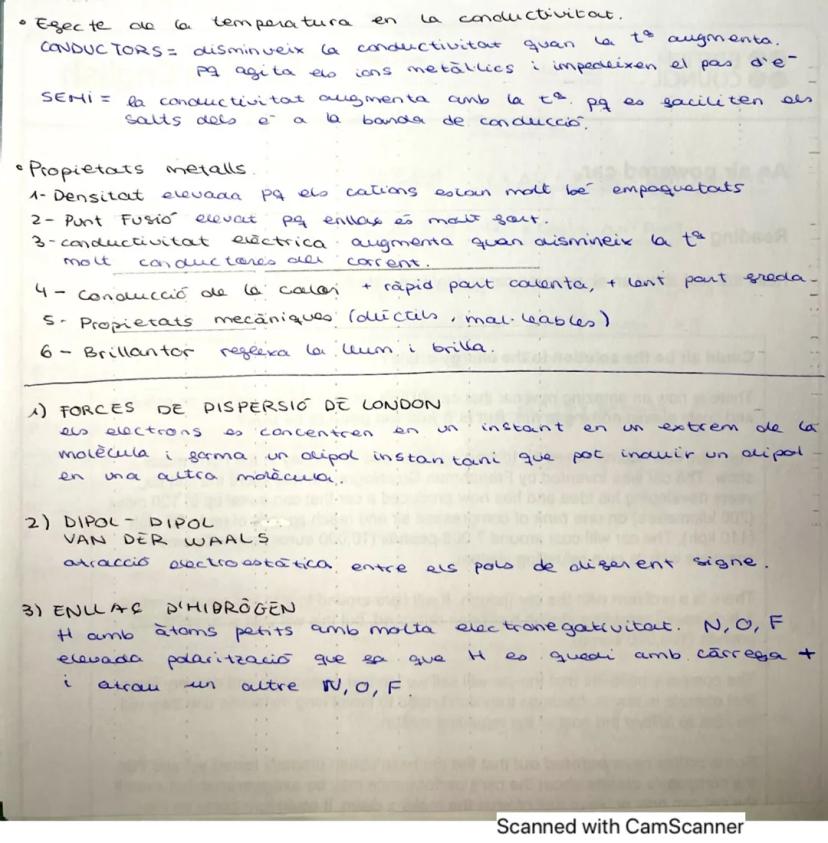 • Efecte de la temperatura en la conductivitat.
CONDUCTORS = disminueix la conductivitat quan la tª augmenta.
pq agita els ions metàl·lics i impedeixen el pas d'e-
SEMI = la conductivitat augmenta amb la tª pq es faciliten els
salts dels e- a la banda de conducció.
• Propietats metalls.
1- Densitat elevada pq els cations estan molt bé empaquetats
2- Punt Fusió elevat pq enllaç és molt fort.
3- conductivitat elèctrica augmenta quan dismineix la tª
molt conductores del corrent.
4 - Conducció de la calor + ràpid part calenta, + lent part freda.
5 - Propietats mecàniques (dúctils, mal·leables)
6 - Brillantor reflexa la llum i brilla.
1) FORCES DE DISPERSIÓ DE LONDON
els electrons es concentren en un instant en un extrem de la
molècula i forma un dipol instantani que pot induir un dipol
en una altra molècula.
2) DIPOL - DIPOL
VAN DER WAALS
atracció electroestàtica entre els pols de diferent signe.
3) ENLLAÇ D'HIDRÒGEN
H amb àtoms petits amb molta electronegativitat. N, O, F
elevada polarització que fa que H es quedi amb càrrega +
i atrau un altre N, O, F.
Scanned with CamScanner